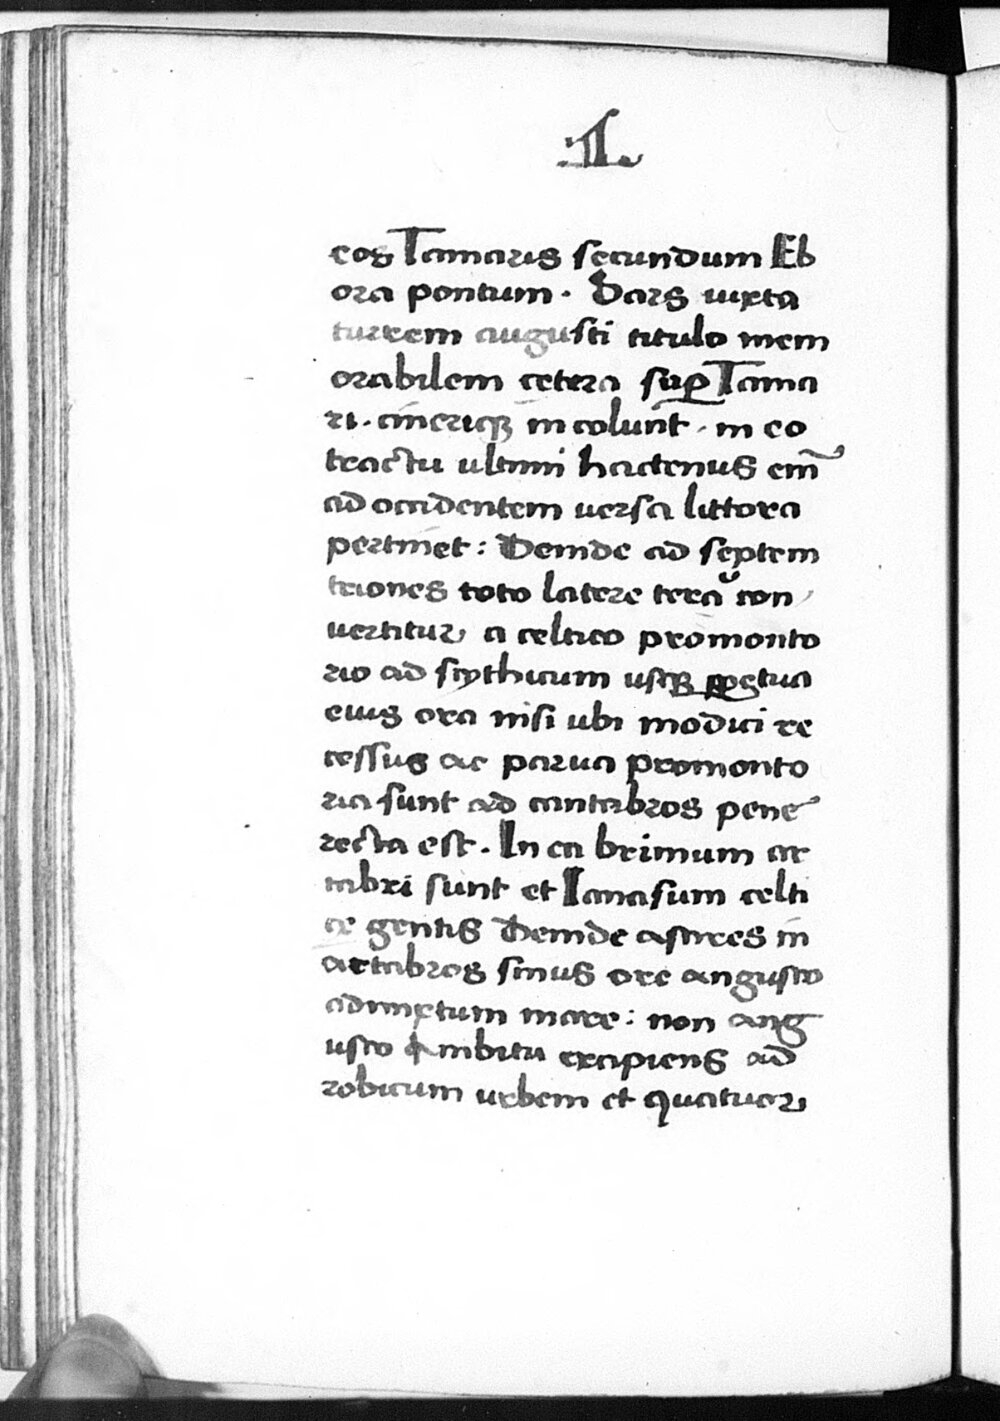 cos Tamaris secundum Eb
ora pontum · Sars iuxta
turrem augusti titulo mem
orabilem cetera sup Tama
ri · cineriq3 incolunt · in eo
tractu ultimi hactenus em̄
ad occidentem versa littora
pertinet : Deinde ad septem
triones toto latere tera con
vertitur a celtico promonto
rio ad scythicum usq3 ppetua
eius ora nisi ubi modici re
cessus ac parva promonto
ria sunt ad cantabros pene
recta est · In ea brimum ar
tabri sunt et Ianasum celti
ce gentis Deinde astires in
artabros sinus ore angusto
admixtum mare : non ang
usto ambitu excipiens ad
robicum urbem et quatuor